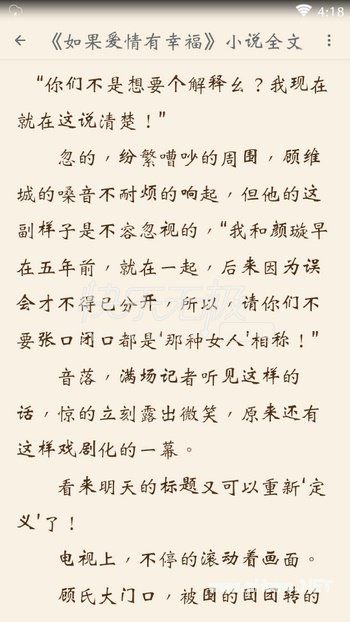 4:18
《如果爱情有幸福》小说全文
“你们不是想要个解释么？我现在
就在这说清楚！”
忽的，纷繁嘈吵的周围，顾维
城的嗓音不耐烦的响起，但他的这
副样子是不容忽视的，“我和颜璇早
在五年前，就在一起，后来因为误
会才不得已分开，所以，请你们不
要张口闭口都是‘那种女人’相称！”
音落，满场记者听见这样的
话，惊的立刻露出微笑，原来还有
这样戏剧化的一幕。
看来明天的标题又可以重新‘定
义’了！
电视上，不停的滚动着画面。
顾氏大门口，被围的团团转的